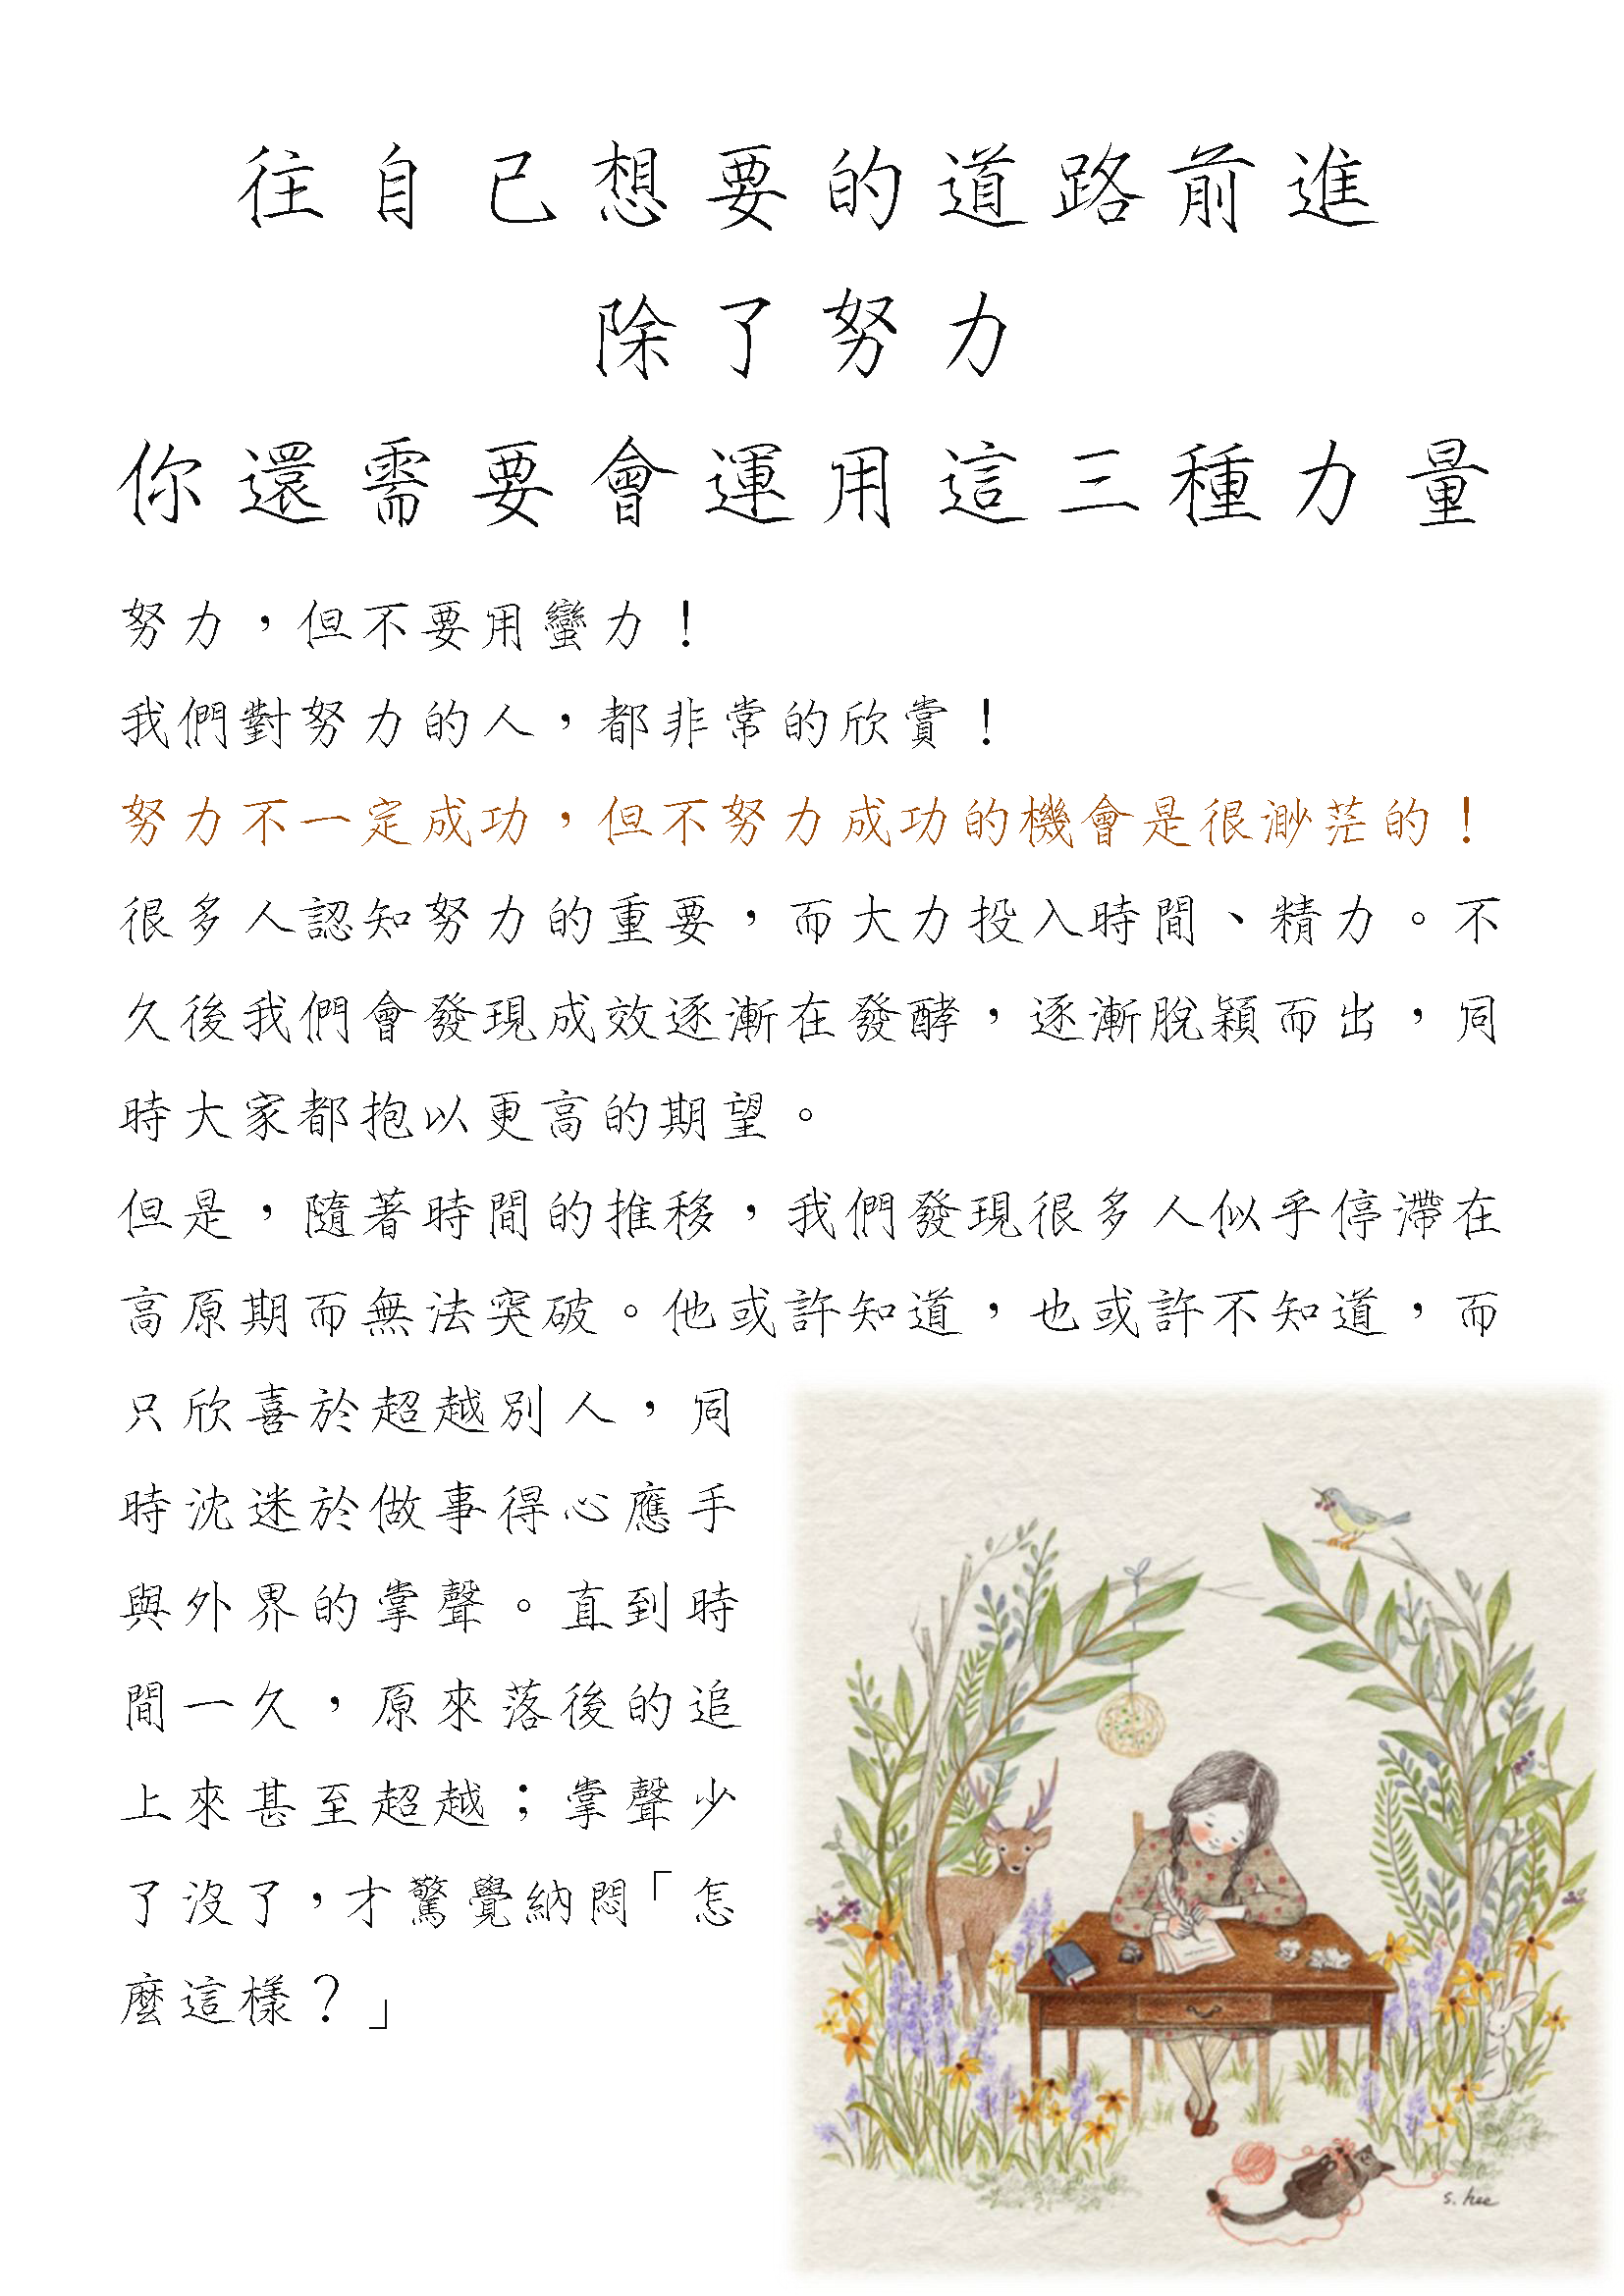 往自己想要的道路前進
除了努力
你還需要會運用這三種力量
努力，但不要用蠻力！
我們對努力的人，都非常的欣賞！
努力不一定成功，但不努力成功的機會是很渺茫的！
很多人認知努力的重要，而大力投入時間、精力。不
久後我們會發現成效逐漸在發酵，逐漸脫穎而出，同
時大家都抱以更高的期望。
但是，隨著時間的推移，我們發現很多人似乎停滯在
高原期而無法突破。他或許知道，也或許不知道，而
只欣喜於超越別人，同
時沈迷於做事得心應手
與外界的掌聲。直到時
間一久，原來落後的追
上來甚至超越；掌聲少
了沒了，才驚覺納悶「怎
麼這樣？」
s. hee